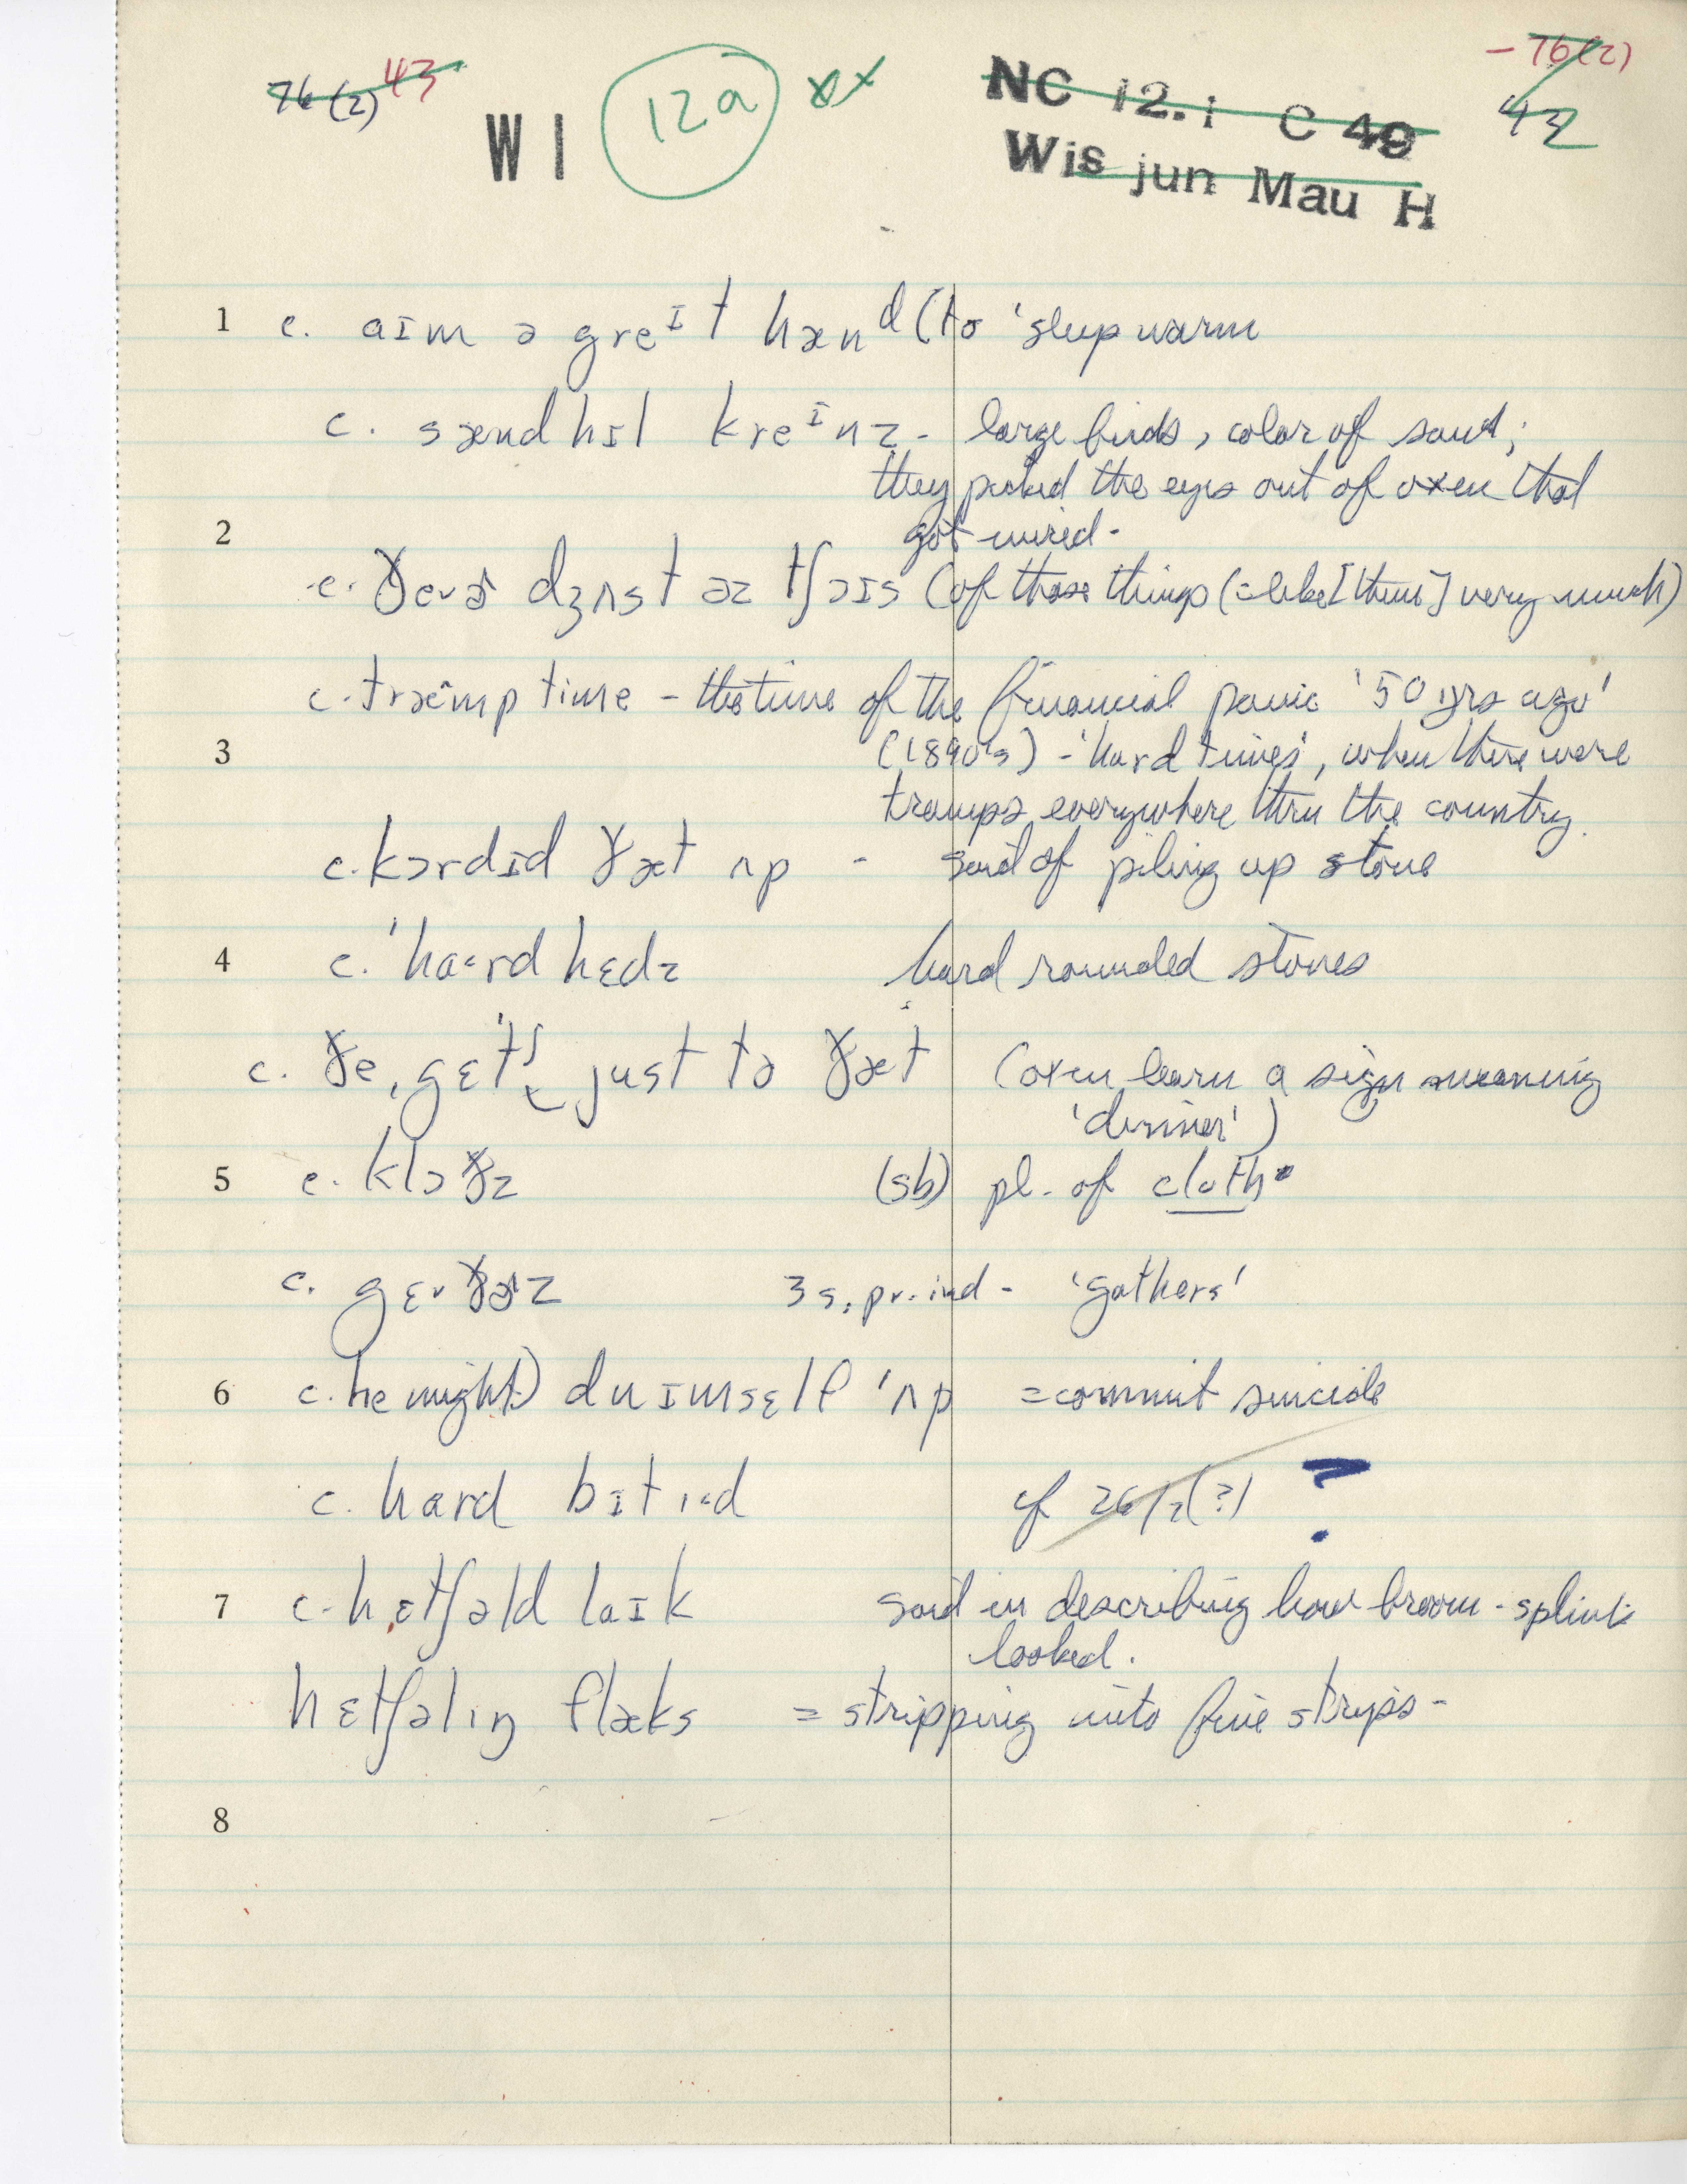 76(2) 43
WI 12a xx
NC 12.1 C 49
Wis jun Mau H
-76(2)
42
1 c. aɪm ə greɪt hænd (to 'sleep warm
c. sændhɪl kreɪnz - large birds, color of sand;
they picked the eyes out of oxen that
2 got mired.
c. ðɚ dʒʌst əz tʃɔɪs (of those things (=like [them] very much)
c. træmp time - the time of the financial panic '50 yrs ago'
3 (1890's) - 'hard times', when there were
tramps everywhere thru the country.
c. kɔrdɪd ðæt ʌp - said of piling up stone
4 c. 'hard hɛdz hard rounded stones
c. ðe ˌgɛt just tə ðæt (oxen learn a sign meaning
'dinner')
5 c. klɔðz (sb) pl. of cloth.
c. gɛðɚz 3 s. pr. ind - 'gathers'
6 c. he might) du ɪmsɛlf 'ʌp =commit suicide
c. hard bɪtɪd cf 26/2(?) ?
7 c. hɛtʃəld laɪk said in describing how broom-splints
looked.
hɛtʃəlɪŋ flæks = stripping into fine strips-
8